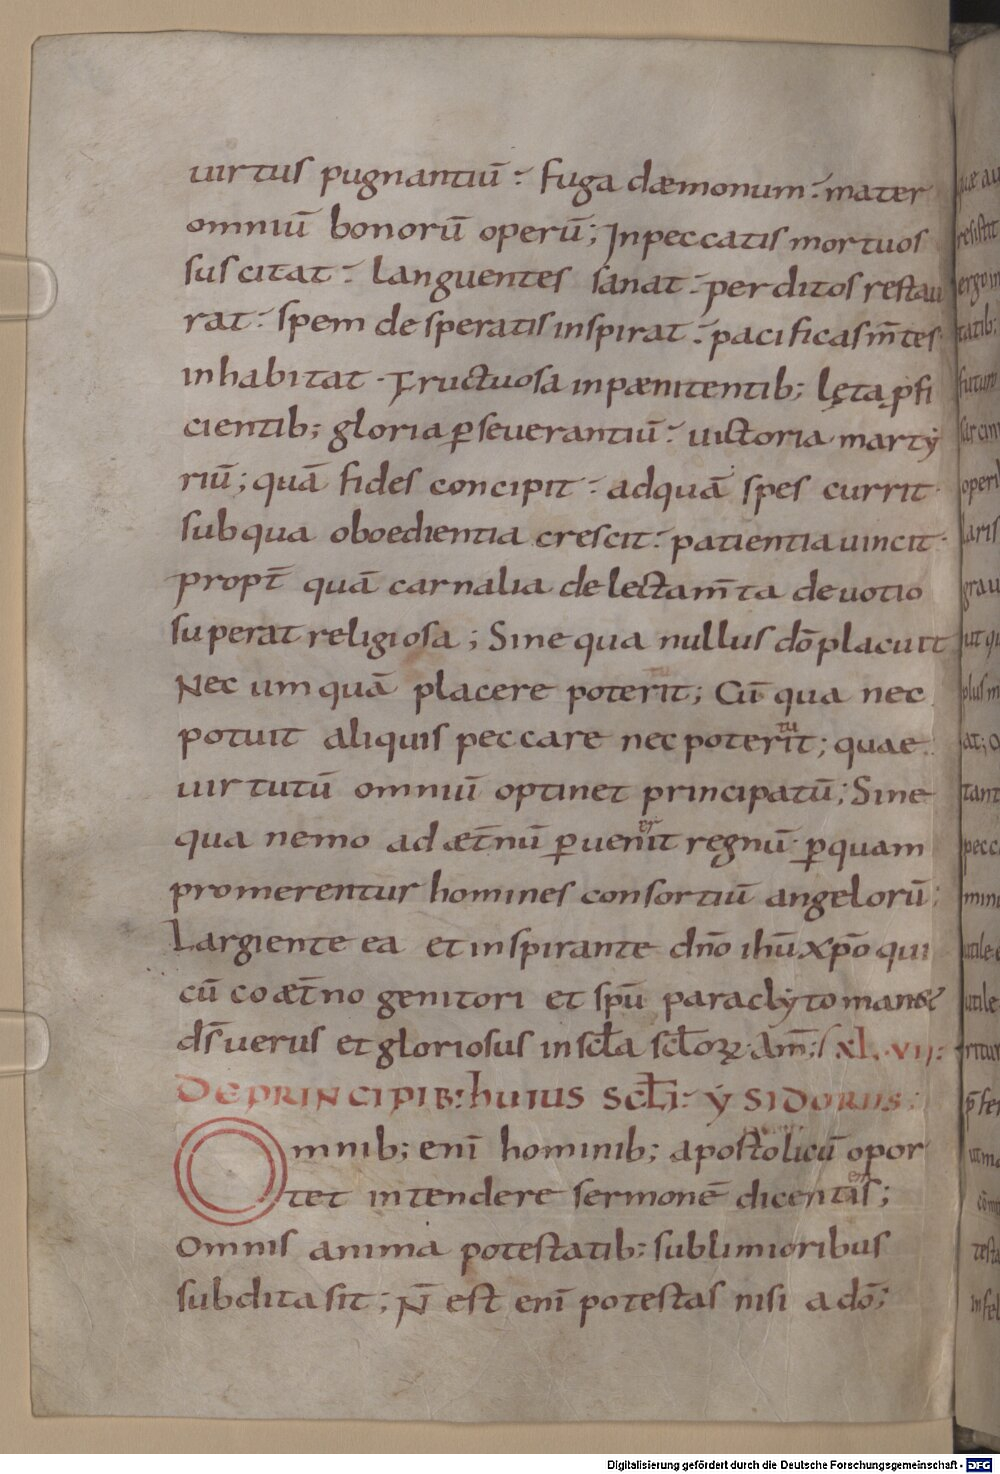 uirtus pugnantiū: fuga dæmonum: mater
omniū bonorū operū; Inpeccatis mortuos
suscitat: languentes sanat: perditos restau
rat: spem desperatis inspirat: pacificas m̄tes
inhabitat· Fructuosa inpænitentib; lęta ꝓfi
cientib; gloria ꝑseuerantiū: uictoria marty
riū; quā fides concipit: adquā spes currit·
subqua oboedientia crescit: patientia uincit·
propt̄ quā carnalia delectam̄ta deuotio
superat religiosa; Sine qua nullus dō placuit
Nec umquā placere poterit; Cū qua nec
potuit aliquis peccare nec poterit; quae
uirtutū omniū optinet principatū; Sine
qua nemo ad æt̄nū ꝑuenit regnū· ꝑquam
promerentur homines consortiū angelorū;
Largiente ea et inspirante dn̄o ihū xp̄o qui
cū coæt̄no genitori et sp̄u paraclyto manet
ds̄ uerus et gloriosus in sc̄la sc̄loꝝ· Am̄; XL·VII:
DE PRINCIPIB: huius Sc̄Li: YSIDORUS;
Omnib; enī hominib; apostolicū opor
tet intendere sermonē dicentis;
Omnis anima potestatib; sublimioribus
subdita sit; N̄ est enī potestas nisi a dō;
Digitalisierung gefördert durch die Deutsche Forschungsgemeinschaft - DFG